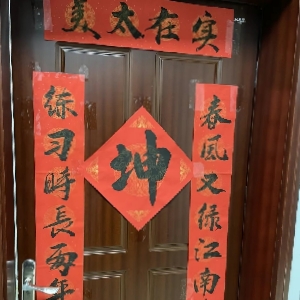 实在太美
春风又绿江南
练习時長两年
坤